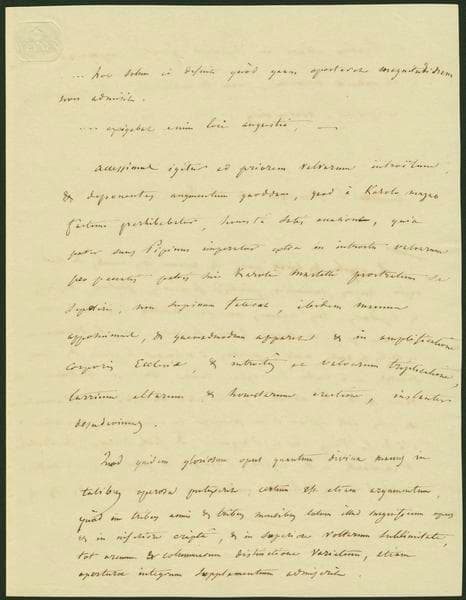 ... hoc solum ei defuit quod quam oporteret magnitudinem
non admisit.
.... exigebat enim loci angustia, —
accessimus igitur ad priorem valvarum introitum,
& deponentes augmentum quoddam, quod à Karolo magno
factum perhibebatur, honestâ satis occasione, quia
pater suus Pipinus imperator extra in introitu valvarum
pro peccatis patris sui Karoli Martelli prostratum se
sepeliri, non supinum fecerat, ibidem manum
apposuimus, & quemadmodum apparet & in amplificatione
corporis Ecclesiæ, & introitûs ac valvarum triplicatione,
turrium altarum & honestarum erectione, instanter
desudavimus.
Quod quidem gloriosum opus quantum divina manus in
talibus operosa protexerit certum est etiam argumentum,
quòd in tribus annis & tribus mensibus totum illud magnificum opus
& in inferiore criptâ, & in superiore voltarum sublimitate,
tot arcuum & columnarum distinctione variatum, etiam
operturæ integrum supplementum admiserit.